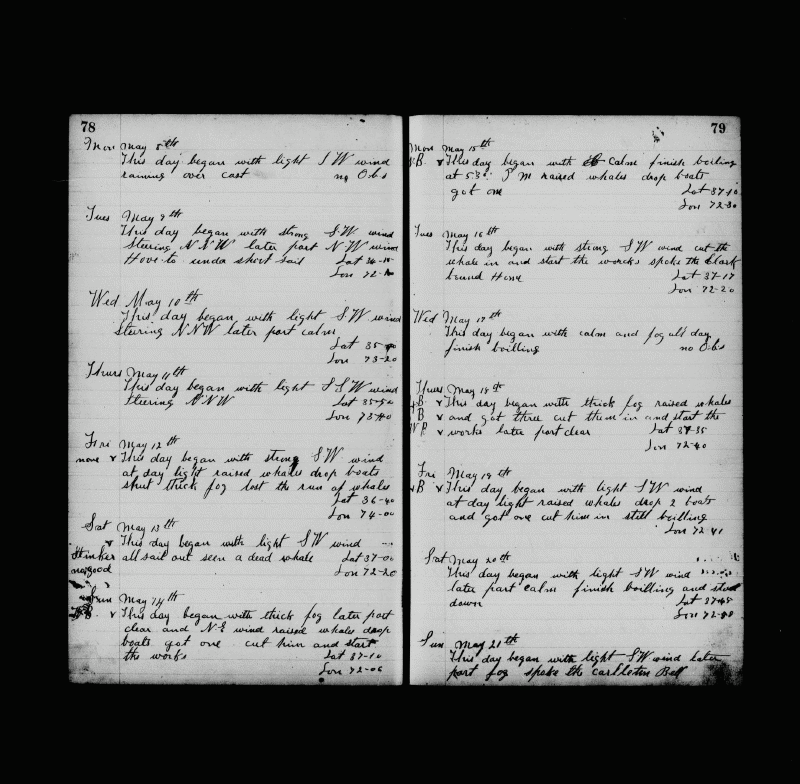 78
Mon May 8th
This day began with light S W wind
raining over cast no Obs
Tues May 9th
This day began with strong S W wind
Steering N N W later part N W wind
Hove to under short sail Lat 34-10
Lon 72-
Wed May 10th
This day began with light S W wind
steering N N W later part calm
Lat 35-
Lon 73-20
Thurs May 11th
This day began with light S S W wind
Steering N N W Lat 35-50
Lon 73-40
Fri May 12th
none v This day began with strong S W wind
at day light raised whales drop boats
shut thick fog lost the run of whales
Lat 36-40
Lon 74-00
Sat May 13th
v This day began with light S W wind
Stinker all sail out seen a dead whale Lat 37-00
no good Lon 72-20
Sun May 14th
v This day began with thick fog later part
clear and N E wind raised whales drop
boats got one cut him in and start
the works Lat 37-10
Lon 72-06
79
Mon May 15th
B. v This day began with calm finish boiling
at 5.30 P M raised whales drop boats
got one Lat 37-10
Lon 72-30
Tues May 16th
This day began with strong S W wind cut the
whale in and start the worcks spoke the Clark
bound Home Lat 37-17
Lon 72-20
Wed May 17th
This day began with calm and fog all day
finish boilling no Obs
Thurs May 18th
B v This day began with thick fog raised whales
B v and got three cut them in and start the
B v works later part clear Lat 37-35
Lon 72-40
Fri May 19th
B v This day began with light S W wind
at day light raised whales drop 2 boats
and got one cut him in still boilling
Lon 72 41
Sat May 20th
This day began with light S W wind
later part calm finish boilling and stood
down Lat 37-45
Lon 72-
Sun May 21th
This day began with light S W wind later
part fog spoke the Carlleton Bell